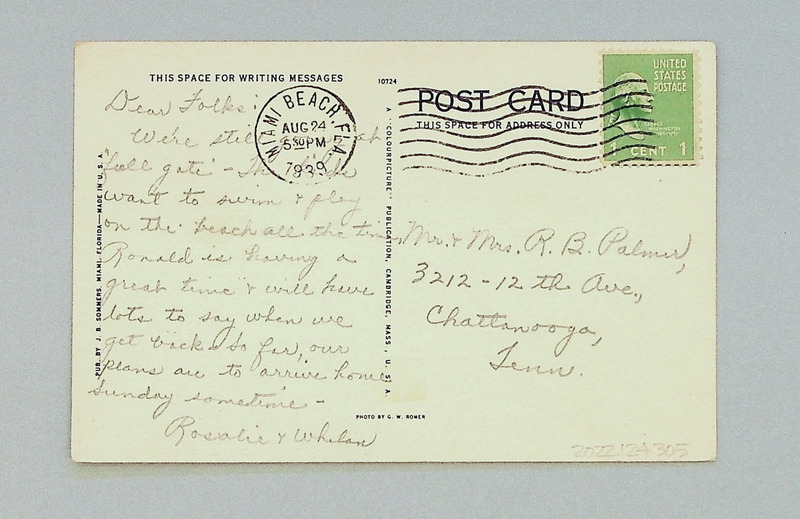 THIS SPACE FOR WRITING MESSAGES
10724
POST CARD
THIS SPACE FOR ADDRESS ONLY
UNITED
STATES
POSTAGE
GEORGE
WASHINGTON
1 CENT 1
MIAMI BEACH, FLA.
AUG 24
5 30 PM
1939
Dear Folks:
We're still at
"full gate" - The
want to swim & play
on the beach all the time.
Ronald is having a
great time & will have
lots to say when we
get back. So far, our
plans are to arrive home
Sunday sometime -
Rosalie & Whelan
PUB. BY J. B. SOMMERS, MIAMI, FLORIDA—MADE IN U. S. A.
A "COLOURPICTURE" PUBLICATION, CAMBRIDGE, MASS., U. S. A.
Mr. & Mrs. R. B. Palmer,
3212 - 12 th Ave.,
Chattanooga,
Tenn.
PHOTO BY G. W. ROMER
2022.124.305